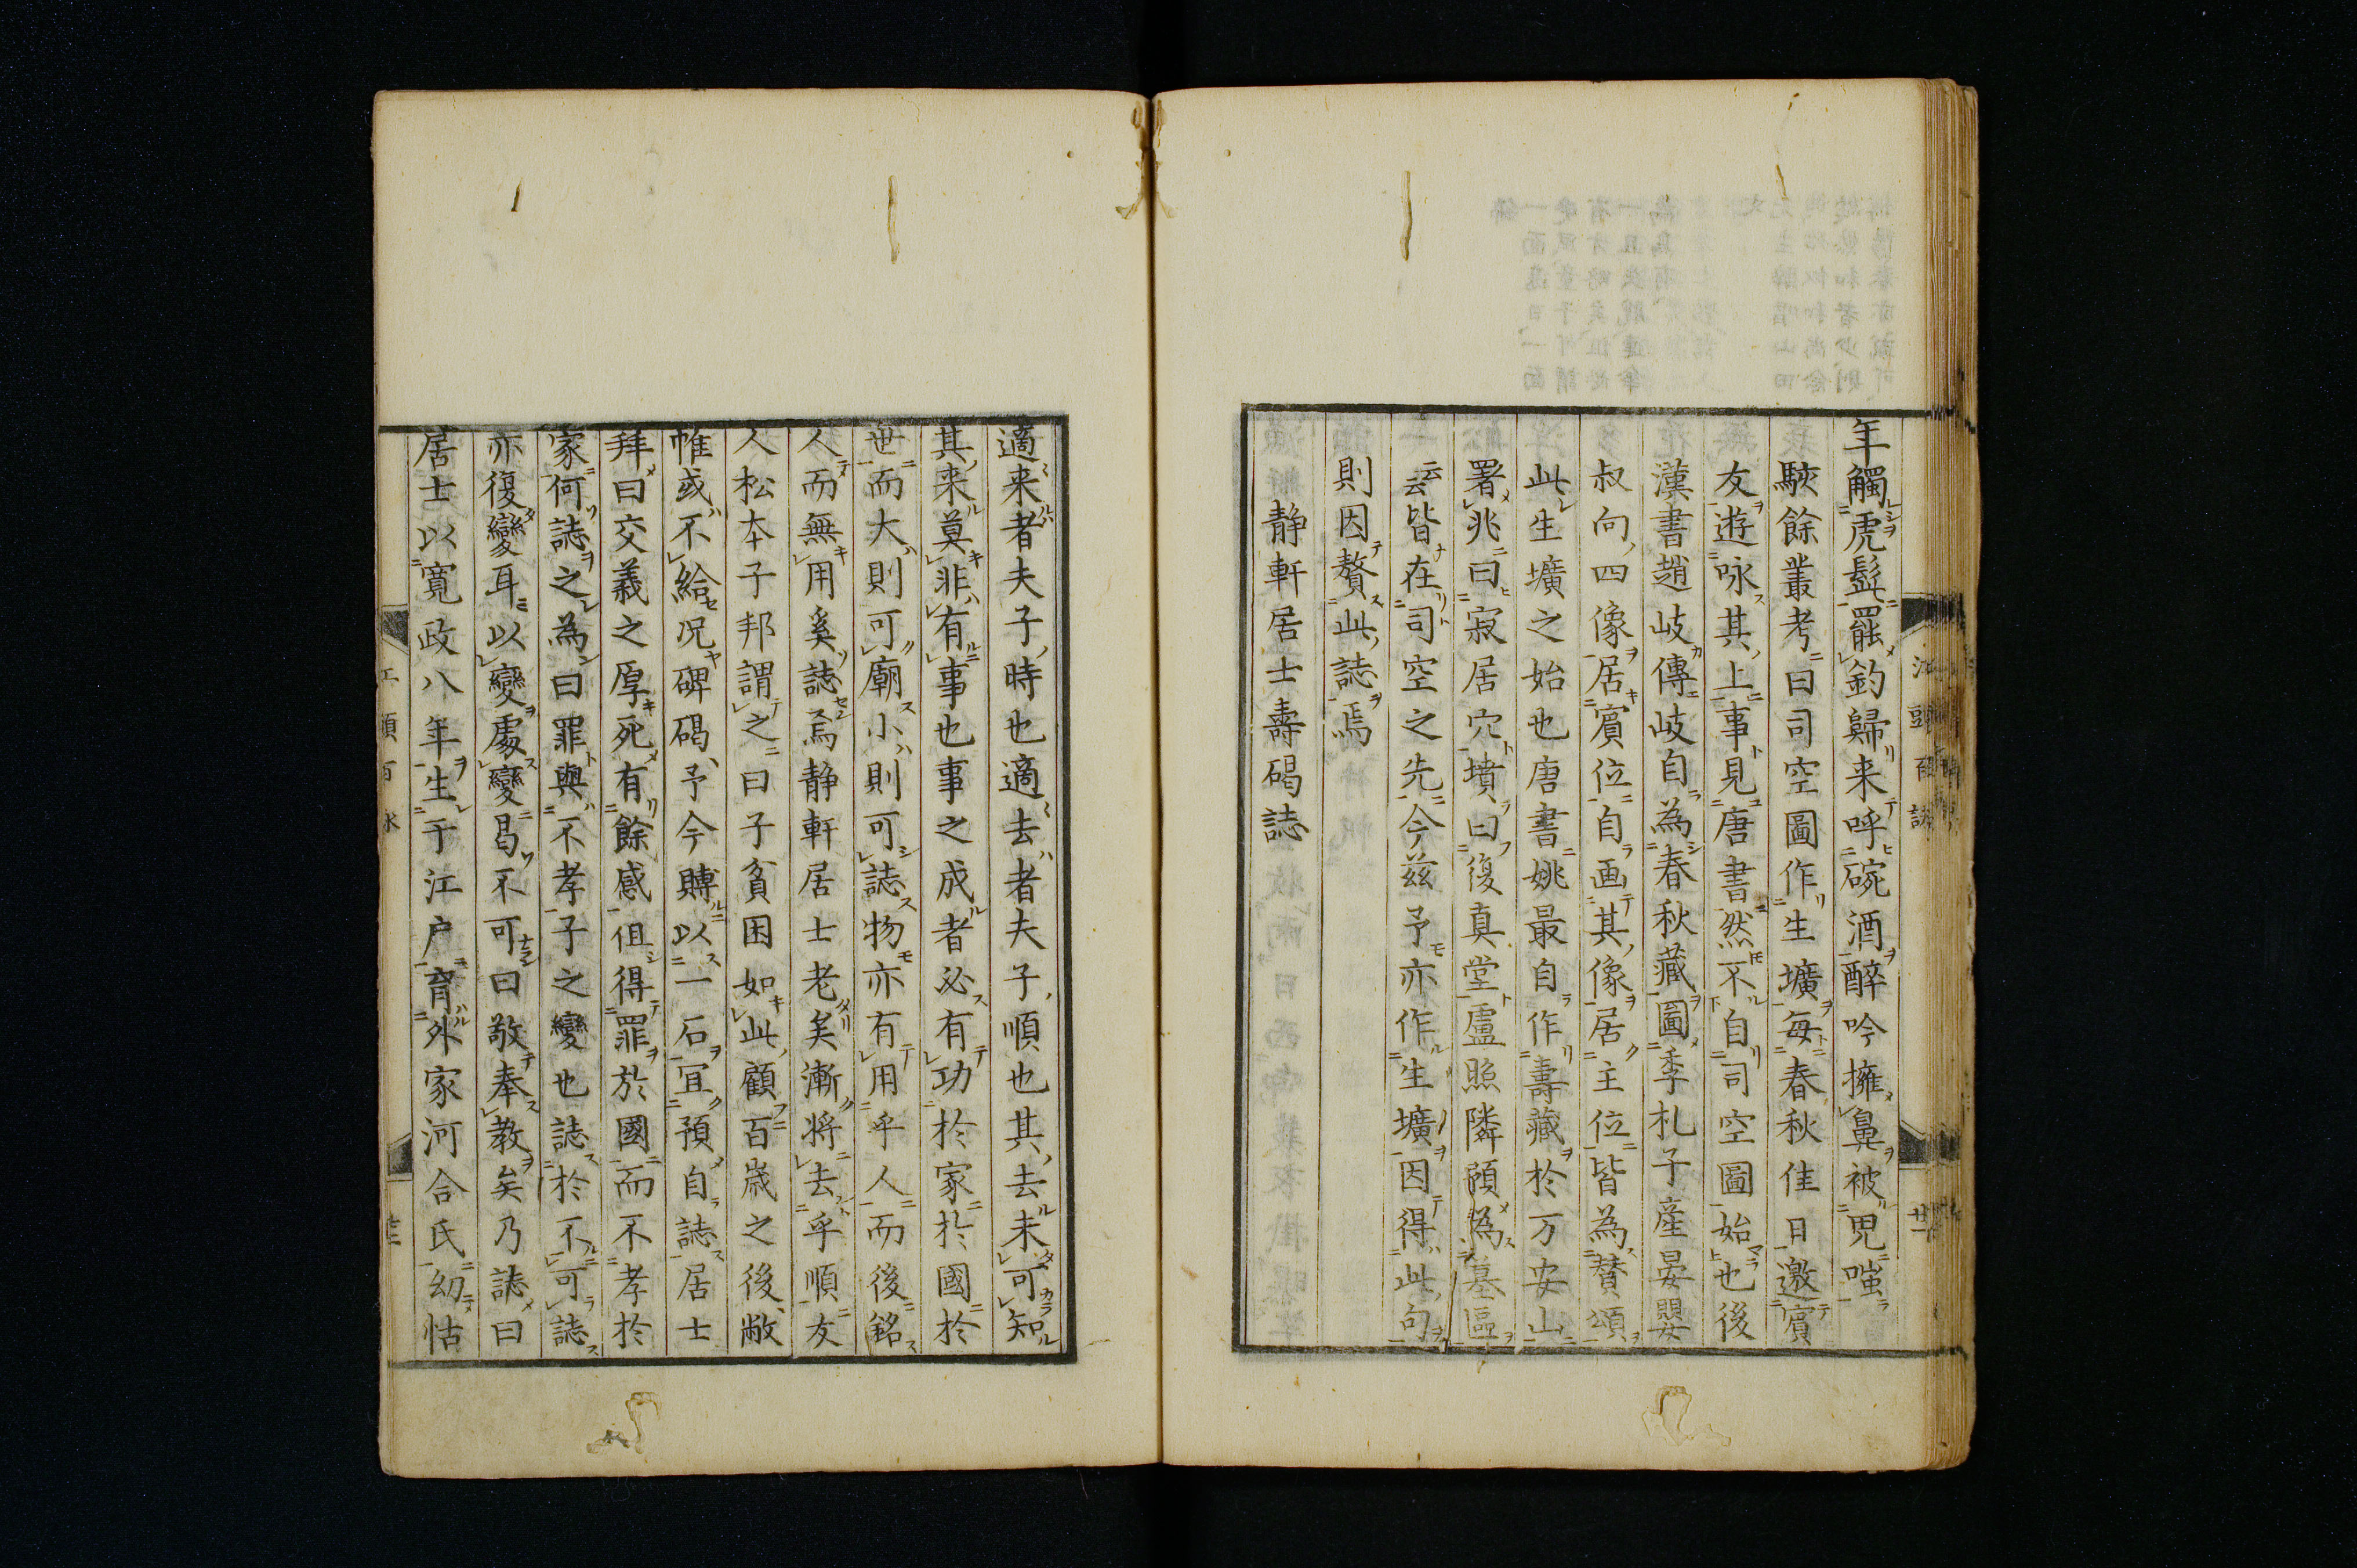 年觸虎髭罷釣歸来呼碗酒醉吟擁鼻被兕嗤
駛餘叢考曰司空圖作生壙每春秋佳日邀賓
友遊咏其上事見唐書然不自司空圖始也後
漢書趙岐傳岐自為春秋藏圖季札子産晏嬰
叔向四像居賓位自画其像居主位皆為賛頌
此生壙之始也唐書姚最自作壽藏於万安山
署兆曰寂居穴墳曰復真堂盧照隣預為墓區
云云皆在司空之先今茲予亦作生壙因得此句
則因贅此誌焉
静軒居士壽碣誌
適来者夫子時也適去者夫子順也其去未可知
其来莫非有事也事之成者必有功於家於國於
世而大則可廟小則可誌物亦有用乎人而後銘
人而無用奚誌焉静軒居士老矣漸将去乎順友
人松本子邦謂之曰子貧困如此顧百歳之後敝
帷或不給况碑碣予今賻以一石冝預自誌居士
拜曰交義之厚死有餘感但得罪於國而不孝於
家何誌之為曰罪與不孝子之變也誌於不可誌
亦復變耳以變處變曷不可曰敬奉教矣乃誌曰
居士以寛政八年生于江戸育外家河合氏幼怙